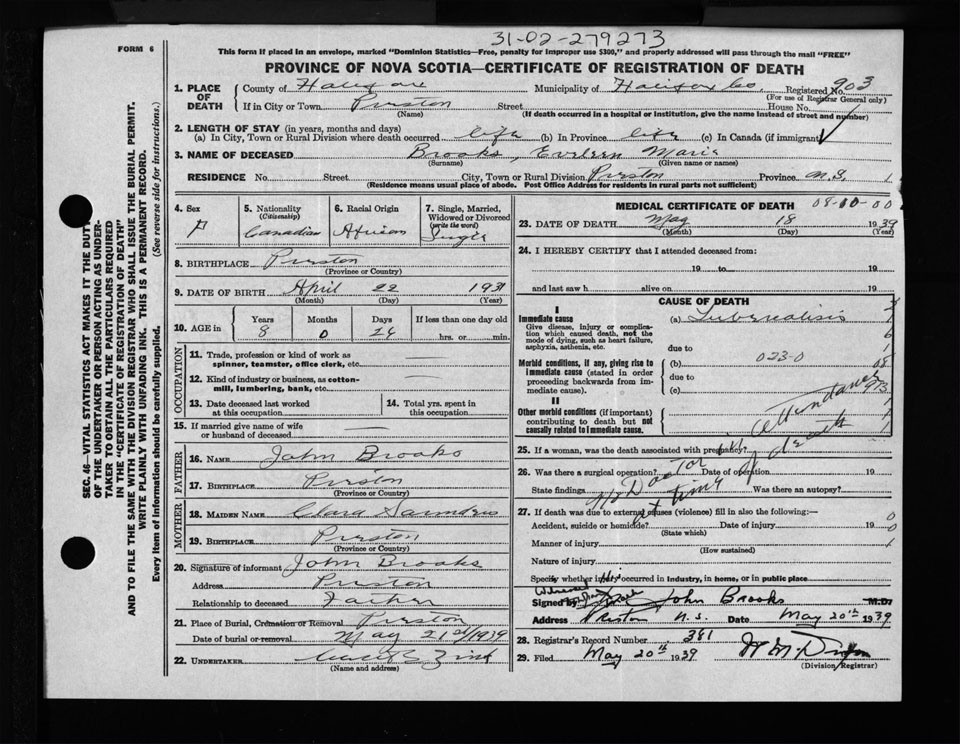 31-02-279273
FORM 6
This form if placed in an envelope, marked "Dominion Statistics—Free, penalty for improper use $300," and properly addressed will pass through the mail "FREE"
PROVINCE OF NOVA SCOTIA—CERTIFICATE OF REGISTRATION OF DEATH
SEC. 46—VITAL STATISTICS ACT MAKES IT THE DUTY
OF THE UNDERTAKER OR PERSON ACTING AS UNDER-
TAKER TO OBTAIN ALL THE PARTICULARS REQUIRED
IN THE "CERTIFICATE OF REGISTRATION OF DEATH"
AND TO FILE THE SAME WITH THE DIVISION REGISTRAR WHO SHALL ISSUE THE BURIAL PERMIT.
WRITE PLAINLY WITH UNFADING INK. THIS IS A PERMANENT RECORD.
Every item of Information should be carefully supplied. (See reverse side for instructions.)
1. PLACE OF DEATH County of Halifax Municipality of Halifax Co. Registered No. 903
(For use of Registrar General only)
If in City or Town Preston Street House No.
(Name) (If death occurred in a hospital or institution, give the name instead of street and number)
2. LENGTH OF STAY (in years, months and days)
(a) In City, Town or Rural Division where death occurred life (b) In Province life (c) In Canada (if immigrant)
3. NAME OF DECEASED Brooks, Evileen Marie
(Surname) (Given name or names)
RESIDENCE No. Street City, Town or Rural Division Preston Province N.S. 1
(Residence means usual place of abode. Post Office Address for residents in rural parts not sufficient)
4. Sex F
5. Nationality (Citizenship) Canadian
6. Racial Origin African
7. Single, Married, Widowed or Divorced (write the word) Single
8. BIRTHPLACE Preston
(Province or Country)
9. DATE OF BIRTH April 22 1931
(Month) (Day) (Year)
10. AGE in Years Months Days If less than one day old
8 0 26 hrs. or min.
OCCUPATION
11. Trade, profession or kind of work as spinner, teamster, office clerk, etc.
12. Kind of industry or business, as cotton-mill, lumbering, bank, etc.
13. Date deceased last worked at this occupation
14. Total yrs. spent in this occupation
15. If married give name of wife or husband of deceased
FATHER
16. NAME John Brooks
17. BIRTHPLACE Preston
(Province or Country)
MOTHER
18. MAIDEN NAME Clara Saunders
19. BIRTHPLACE Preston
(Province or Country)
20. Signature of informant John Brooks
Address Preston
Relationship to deceased Father
21. Place of Burial, Cremation or Removal Preston
Date of burial or removal May 21st/1939
22. UNDERTAKER
(Name and address)
MEDICAL CERTIFICATE OF DEATH 08-00-00
23. DATE OF DEATH May 18 1939
(Month) (Day) (Year)
24. I HEREBY CERTIFY that I attended deceased from:
19 to 19
and last saw h alive on 19
CAUSE OF DEATH
I
Immediate cause (a) Tuberculosis
Give disease, injury or complication which caused death, not the mode of dying, such as heart failure, asphyxia, asthenia, etc.
due to
Morbid conditions, if any, giving rise to immediate cause (stated in order proceeding backwards from immediate cause).
(b) 023-0
due to
(c)
08
973
II
Other morbid conditions (if important) contributing to death but not causally related to immediate cause.
No Doctor in attendance
at time of death
25. If a woman, was the death associated with pregnancy?
26. Was there a surgical operation? Date of operation 19
State findings Was there an autopsy?
27. If death was due to external causes (violence) fill in also the following:—
Accident, suicide or homicide? Date of injury 19
(State which)
Manner of injury
(How sustained)
Nature of injury
Specify whether injury occurred in industry, in home, or in public place
Witness
Signed by John Brooks M.D.
Address Preston N.S. Date May 20th 1939
28. Registrar's Record Number 381
29. Filed May 20th 1939
(Division Registrar)